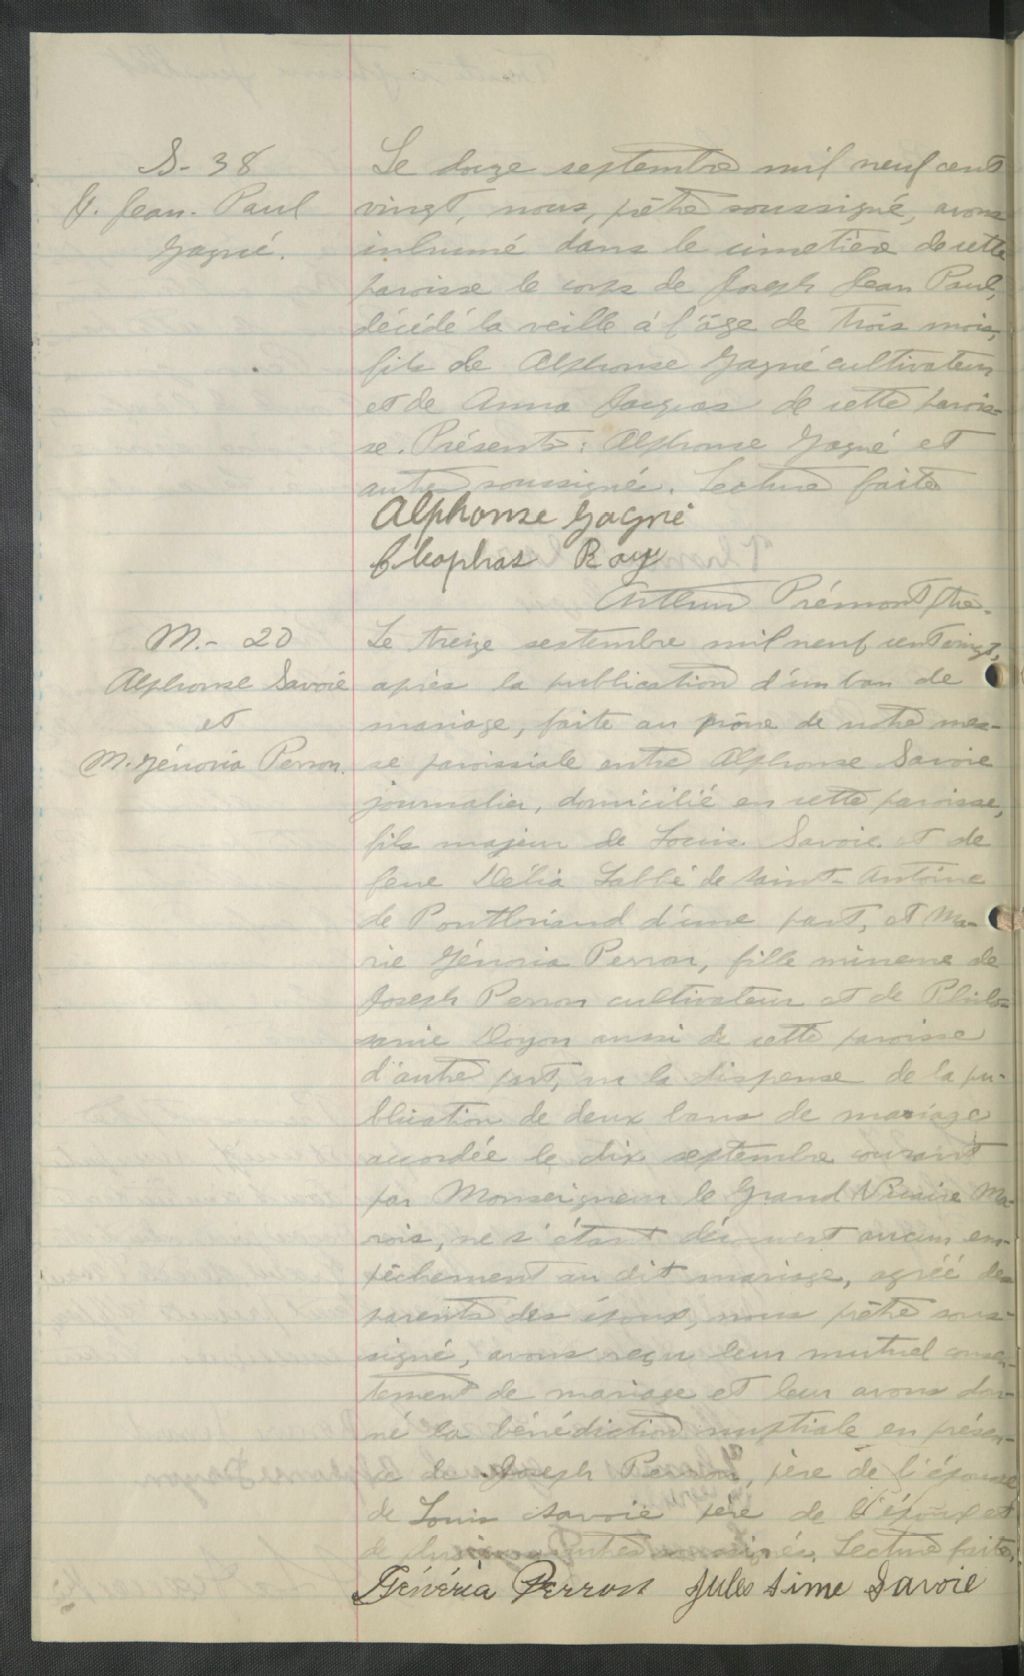 S- 38
J. Jean-Paul
Gagné.
Le douze septembre mil neuf cent
vingt, nous, prêtre soussigné, avons
inhumé dans le cimetière de cette
paroisse le corps de Joseph Jean Paul,
décédé la veille à l'âge de trois mois,
fils de Alphonse Gagné cultivateur
et de Anna Jacques de cette parois-
se. Présents: Alphonse Gagné et
autres soussignés. Lecture faite
Alphonse Gagné
Cleophas Roy
Arthur Prémont ptre.
M.- 20
Alphonse Savoie
et
M. Génoria Perron.
Le treize septembre mil neuf cent vingt,
après la publication d'un ban de
mariage, faite au prône de notre mes-
se paroissiale entre Alphonse Savoie
journalier, domicilié en cette paroisse,
fils majeur de Louis Savoie et de
feue Délia Labbé de Saint-Antoine
de Pontbriand d'une part, et Ma-
rie Génoria Perron, fille mineure de
Joseph Perron cultivateur et de Philo-
Doyon aussi de cette paroisse
d'autre part, vu la dispense de la pu-
blication de deux bans de mariage
accordée le dix septembre courant
par Monseigneur le Grand Vicaire Ma-
rois, ne s'étant découvert aucun em-
pêchement au dit mariage, agréé des
parents des époux, nous prêtre sous-
signé, avons reçu leur mutuel consen-
tement de mariage et leur avons don-
né la bénédiction nuptiale en présen-
ce de Joseph Perron, père de l'épouse
de Louis Savoie père de l'époux et
de plusieurs autres soussignés. Lecture faite.
Généria Perron Jules time Savoie